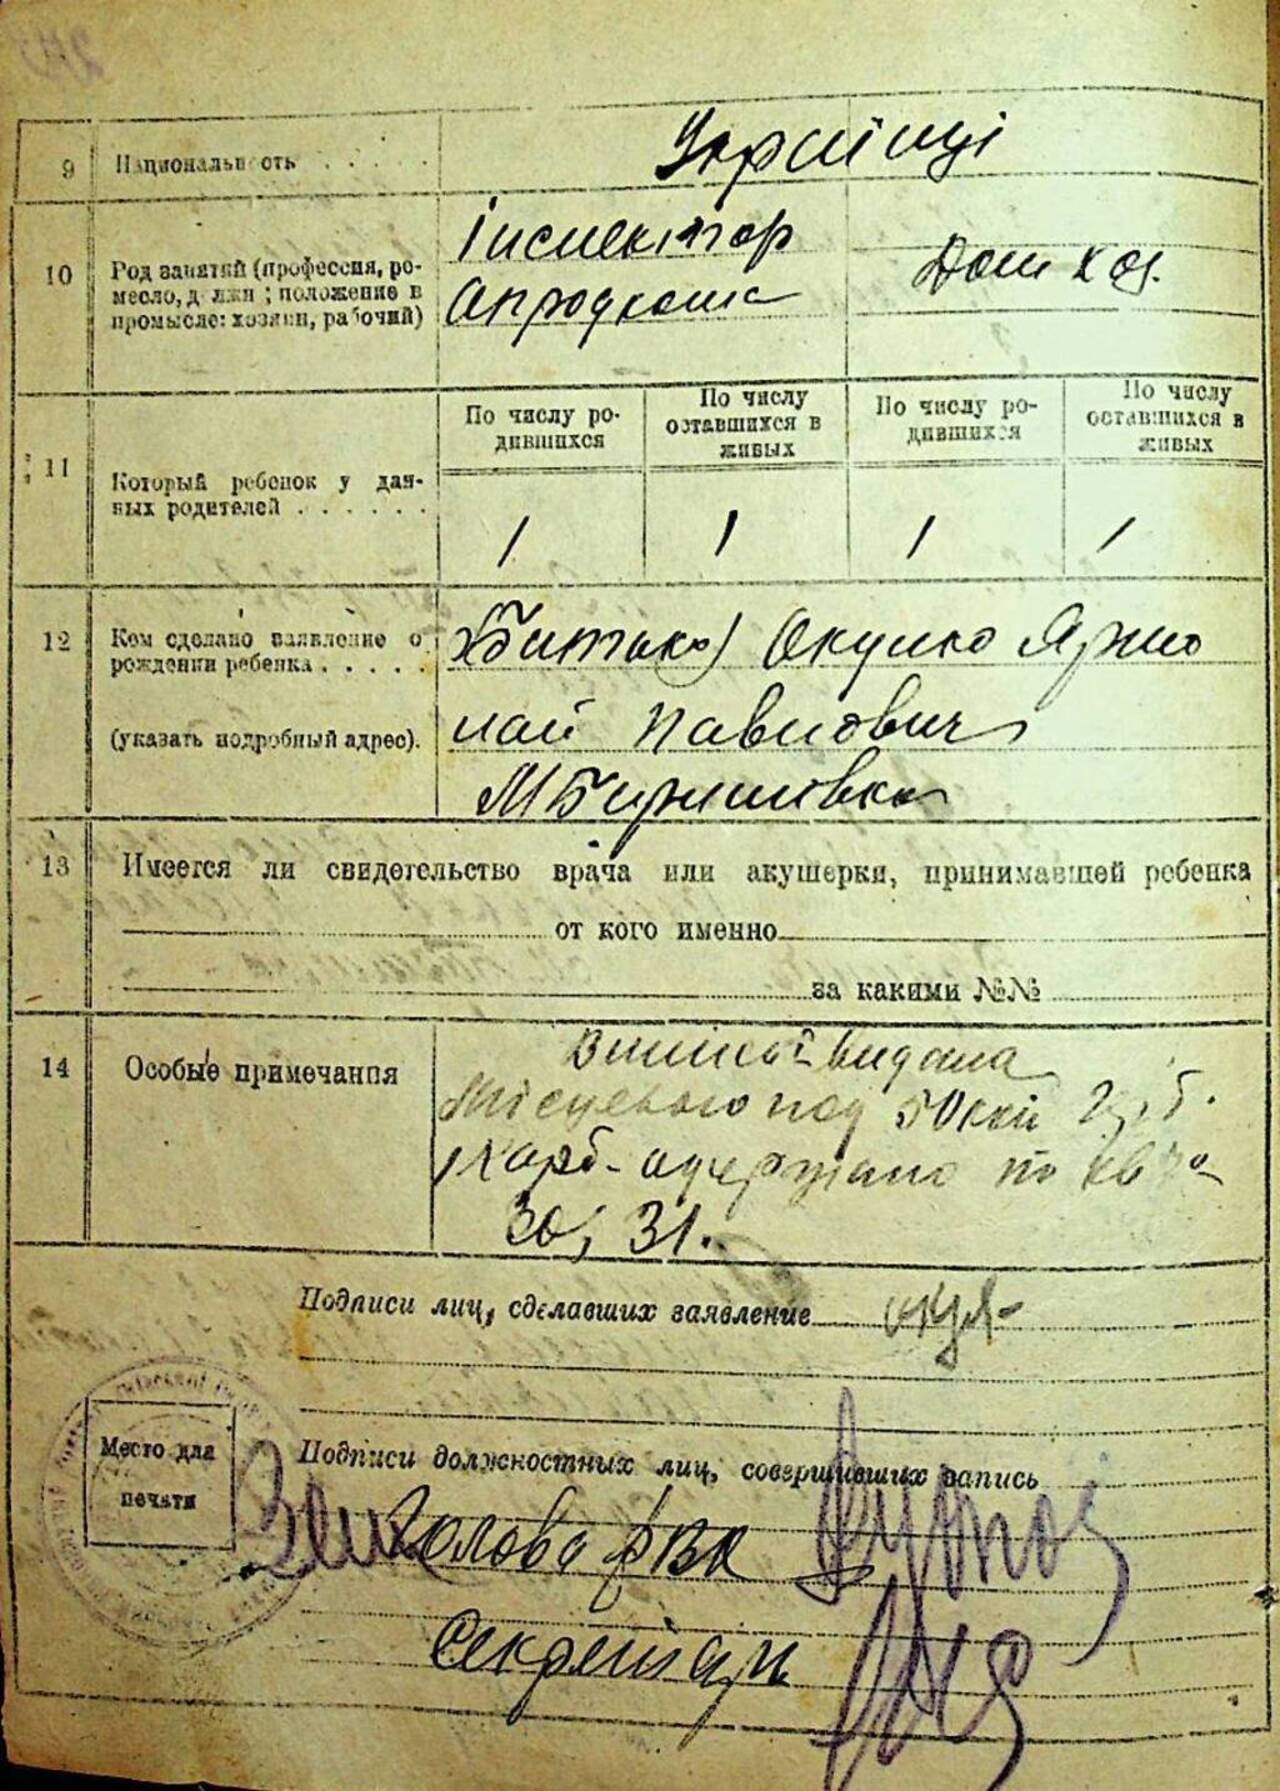 9 Национальность . . . . . Українці
10 Род занятий (профессия, ре-
месло, должн; положение в
промысле: хозяин, рабочий)
Інспектор
Опродкома
Дом хоз.
11 Который ребенок у дан-
ных родителей . . . . . .
По числу ро-
дившихся
По числу
оставшихся в
живых
По числу ро-
дившихся
По числу
оставшихся в
живых
1 1 1 1
12 Кем сделано заявление о
рождении ребенка . . . . .
(указать подробный адрес).
(батько) Окунко Ярмо
лай Павлович
М
13 Имеется ли свидетельство врача или акушерки, принимавшей ребенка
от кого именно
за какими №№
14 Особые примечания
видана
50 коп
1 карб. одержано по кв
30, 31.
Подписи лиц, сделавших заявление
Место для
печати
Подписи должностных лиц, совершивших запись
Голова РВК
Секретарь